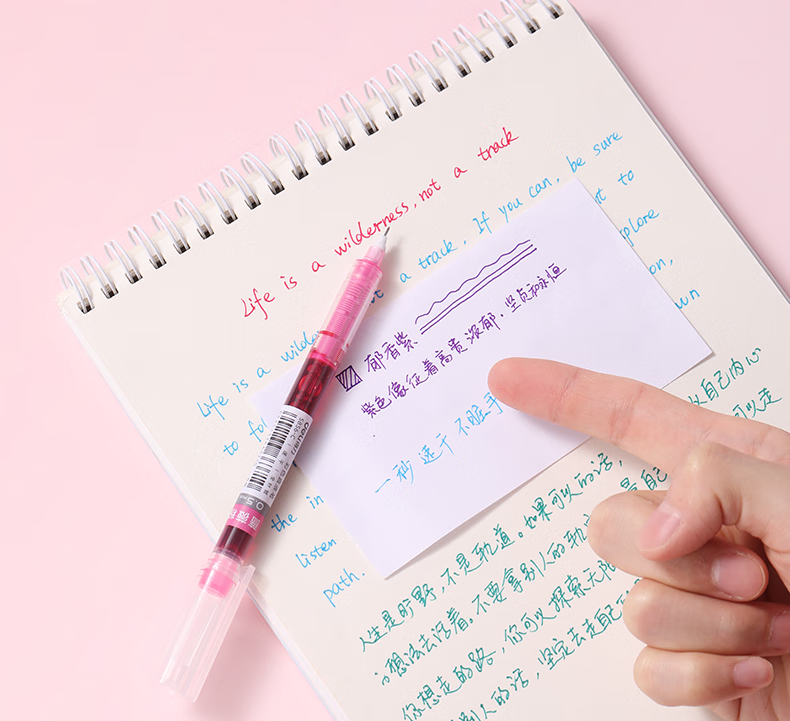 Life is a wilderness, not a track
Life is a wilde a track. If you can, be sure
to fol to
plore
the in on,
listen own
path.
郁香紫
紫色像征着高贵浓郁、坚贞和永恒
一秒速干 不脏手
自己内心
人生是旷野,不是轨道。如果可以的话, 可以走
想法去活着。不要拿别人的轨 自己
你想走的路,你可以探索无限
别人的话,坚定去走自己
deli
0.5mm
蔷薇